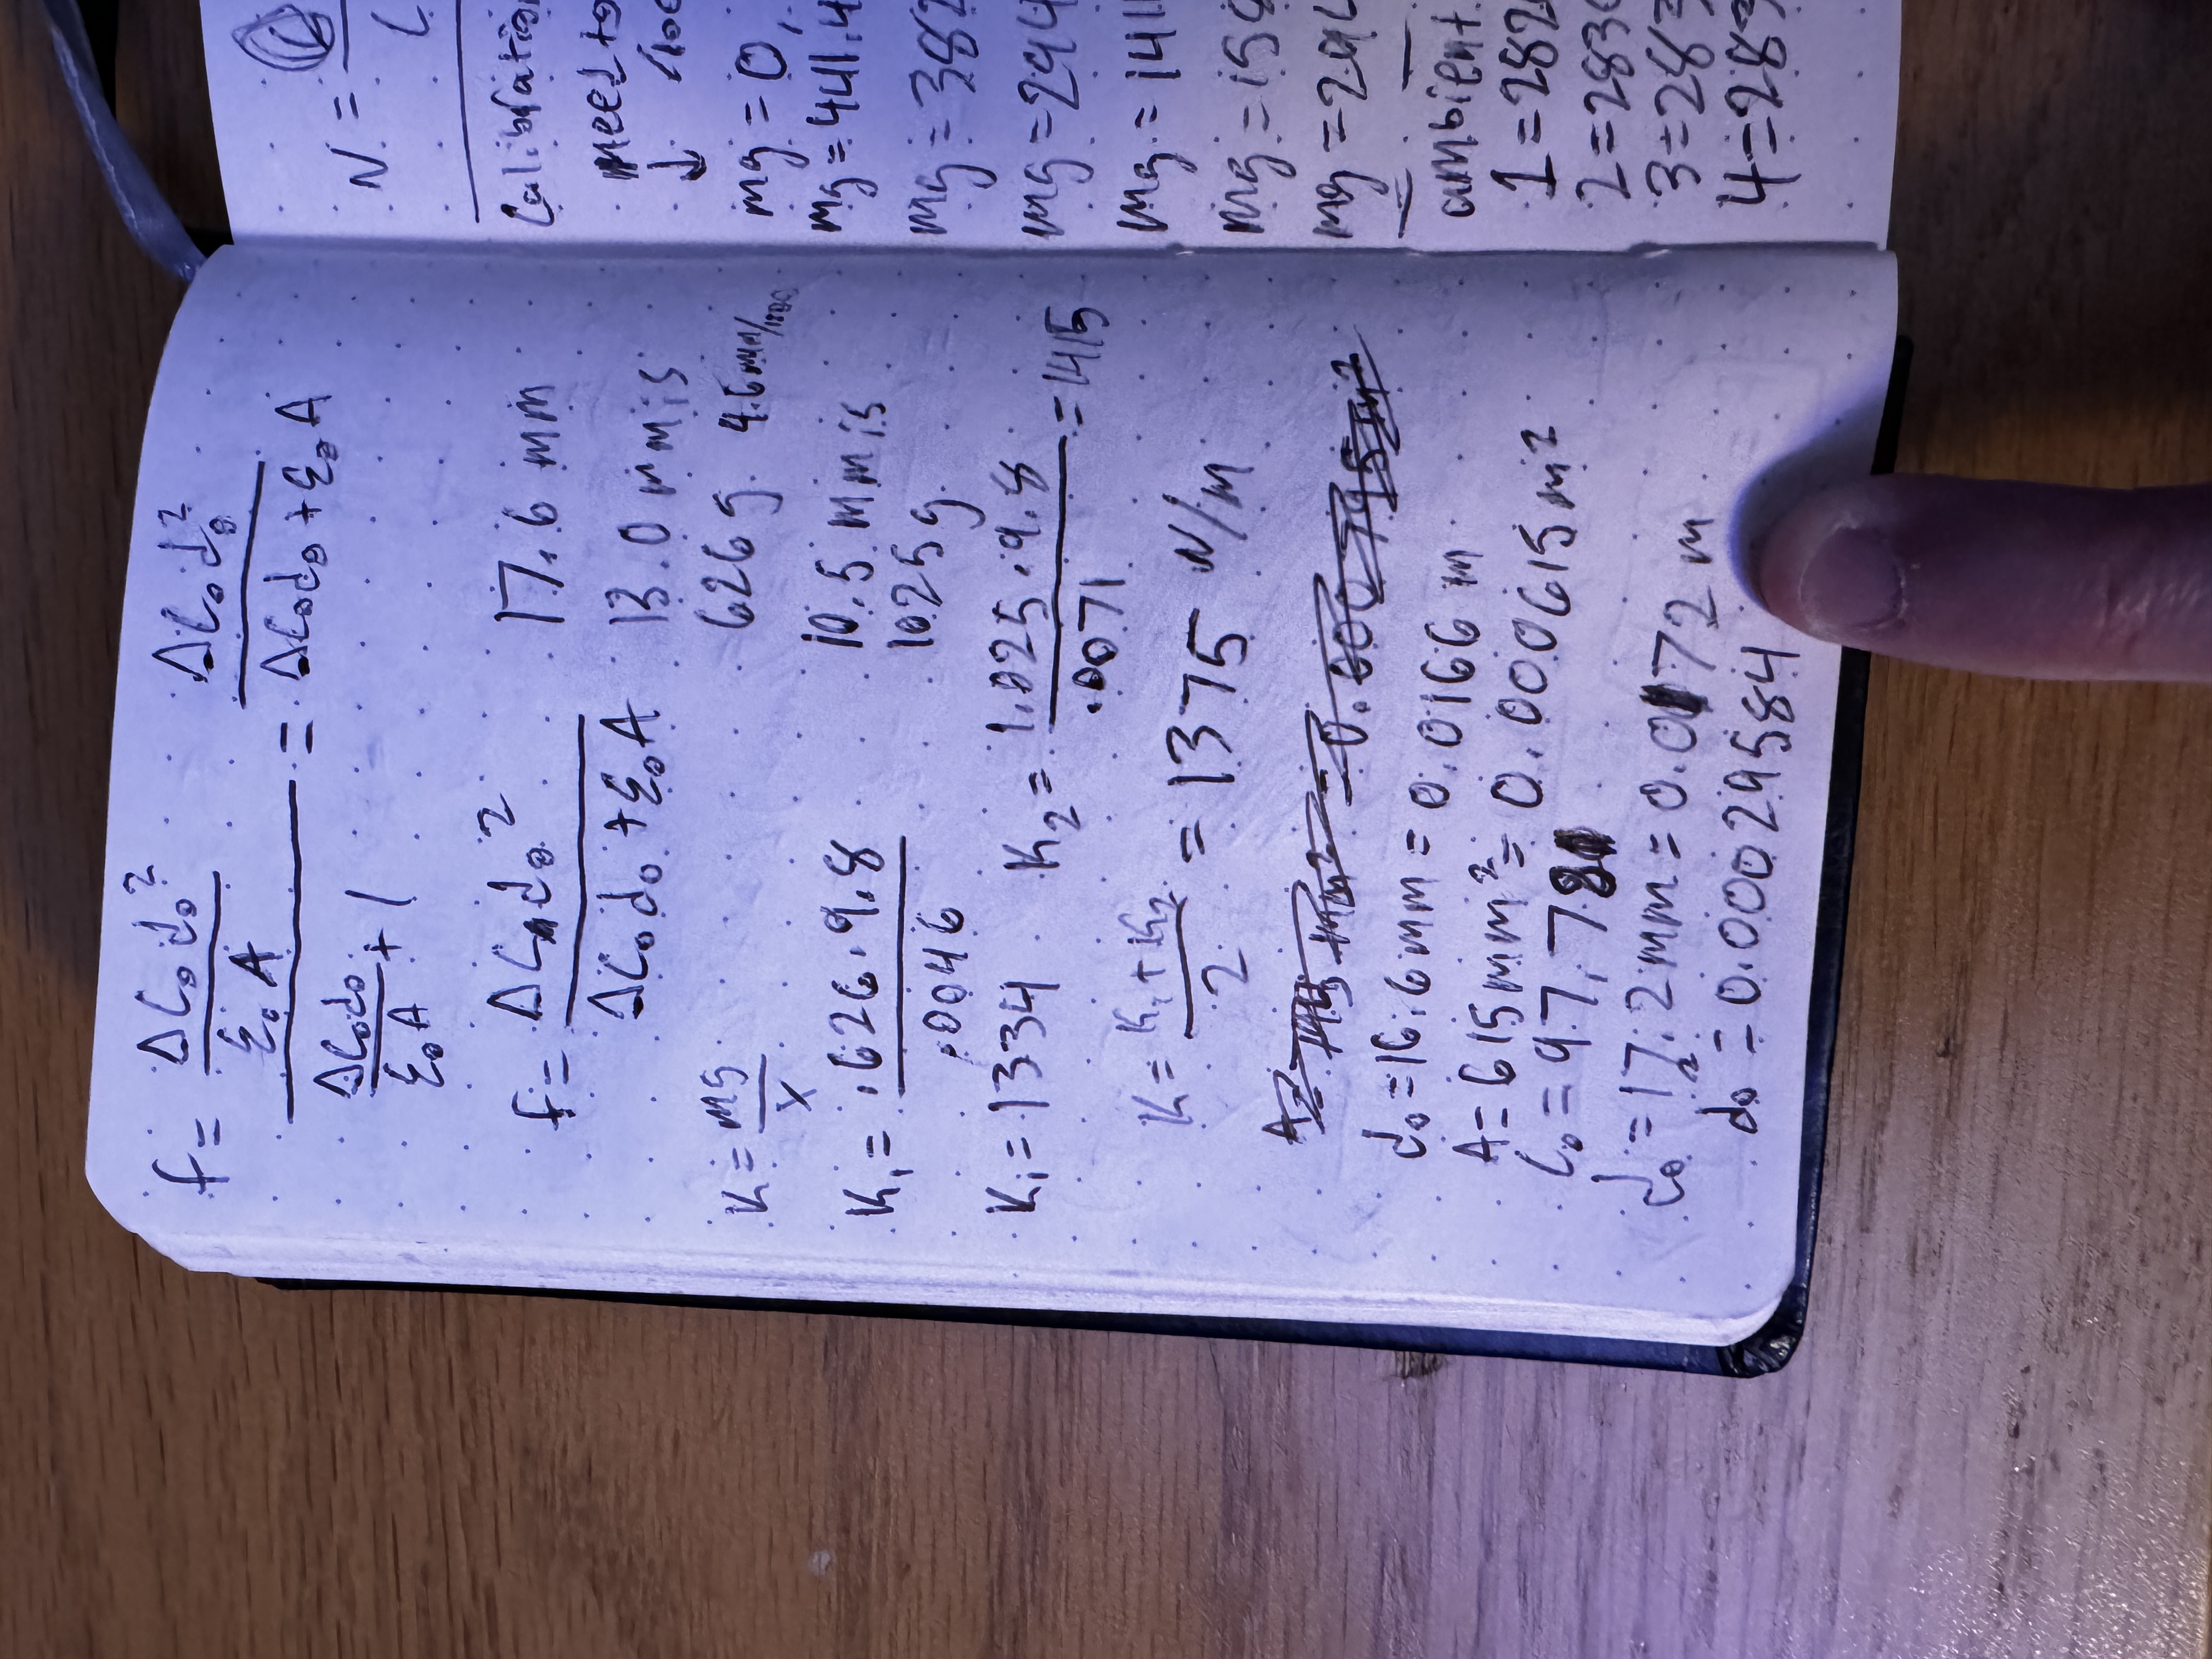 f = ΔC₀d₀² / ε₀A / ΔC₀d₀ / ε₀A + 1 = ΔC₀d₀² / ΔC₀d₀ + ε₀A
f = ΔC₀d₀² / ΔC₀d₀ + ε₀A
17.6 mm
13.0 mm is
626 g
K = mg / x
10.5 mm is
1025 g
K₁ = .626 · 9.8 / .0046
K₁ = 1334
K₂ = 1.025 · 9.8 / .0071 = 1415
K = K₁ + K₂ / 2 = 1375 N/m
d₀ = 16.6 mm = 0.0166 m
A = 615 mm² = 0.000615 m²
C₀ = 97,78
d₀ = 17.2 mm = 0.0172 m
d₀² = 0.00029584
N =
L
Calibration
need to
↓
mg = 0,
mg = 441.4
mg = 382
mg = 294
mg = 141
mg =
mg = 294
ambient
1 = 282
2 = 283
3 = 283
4 = 283